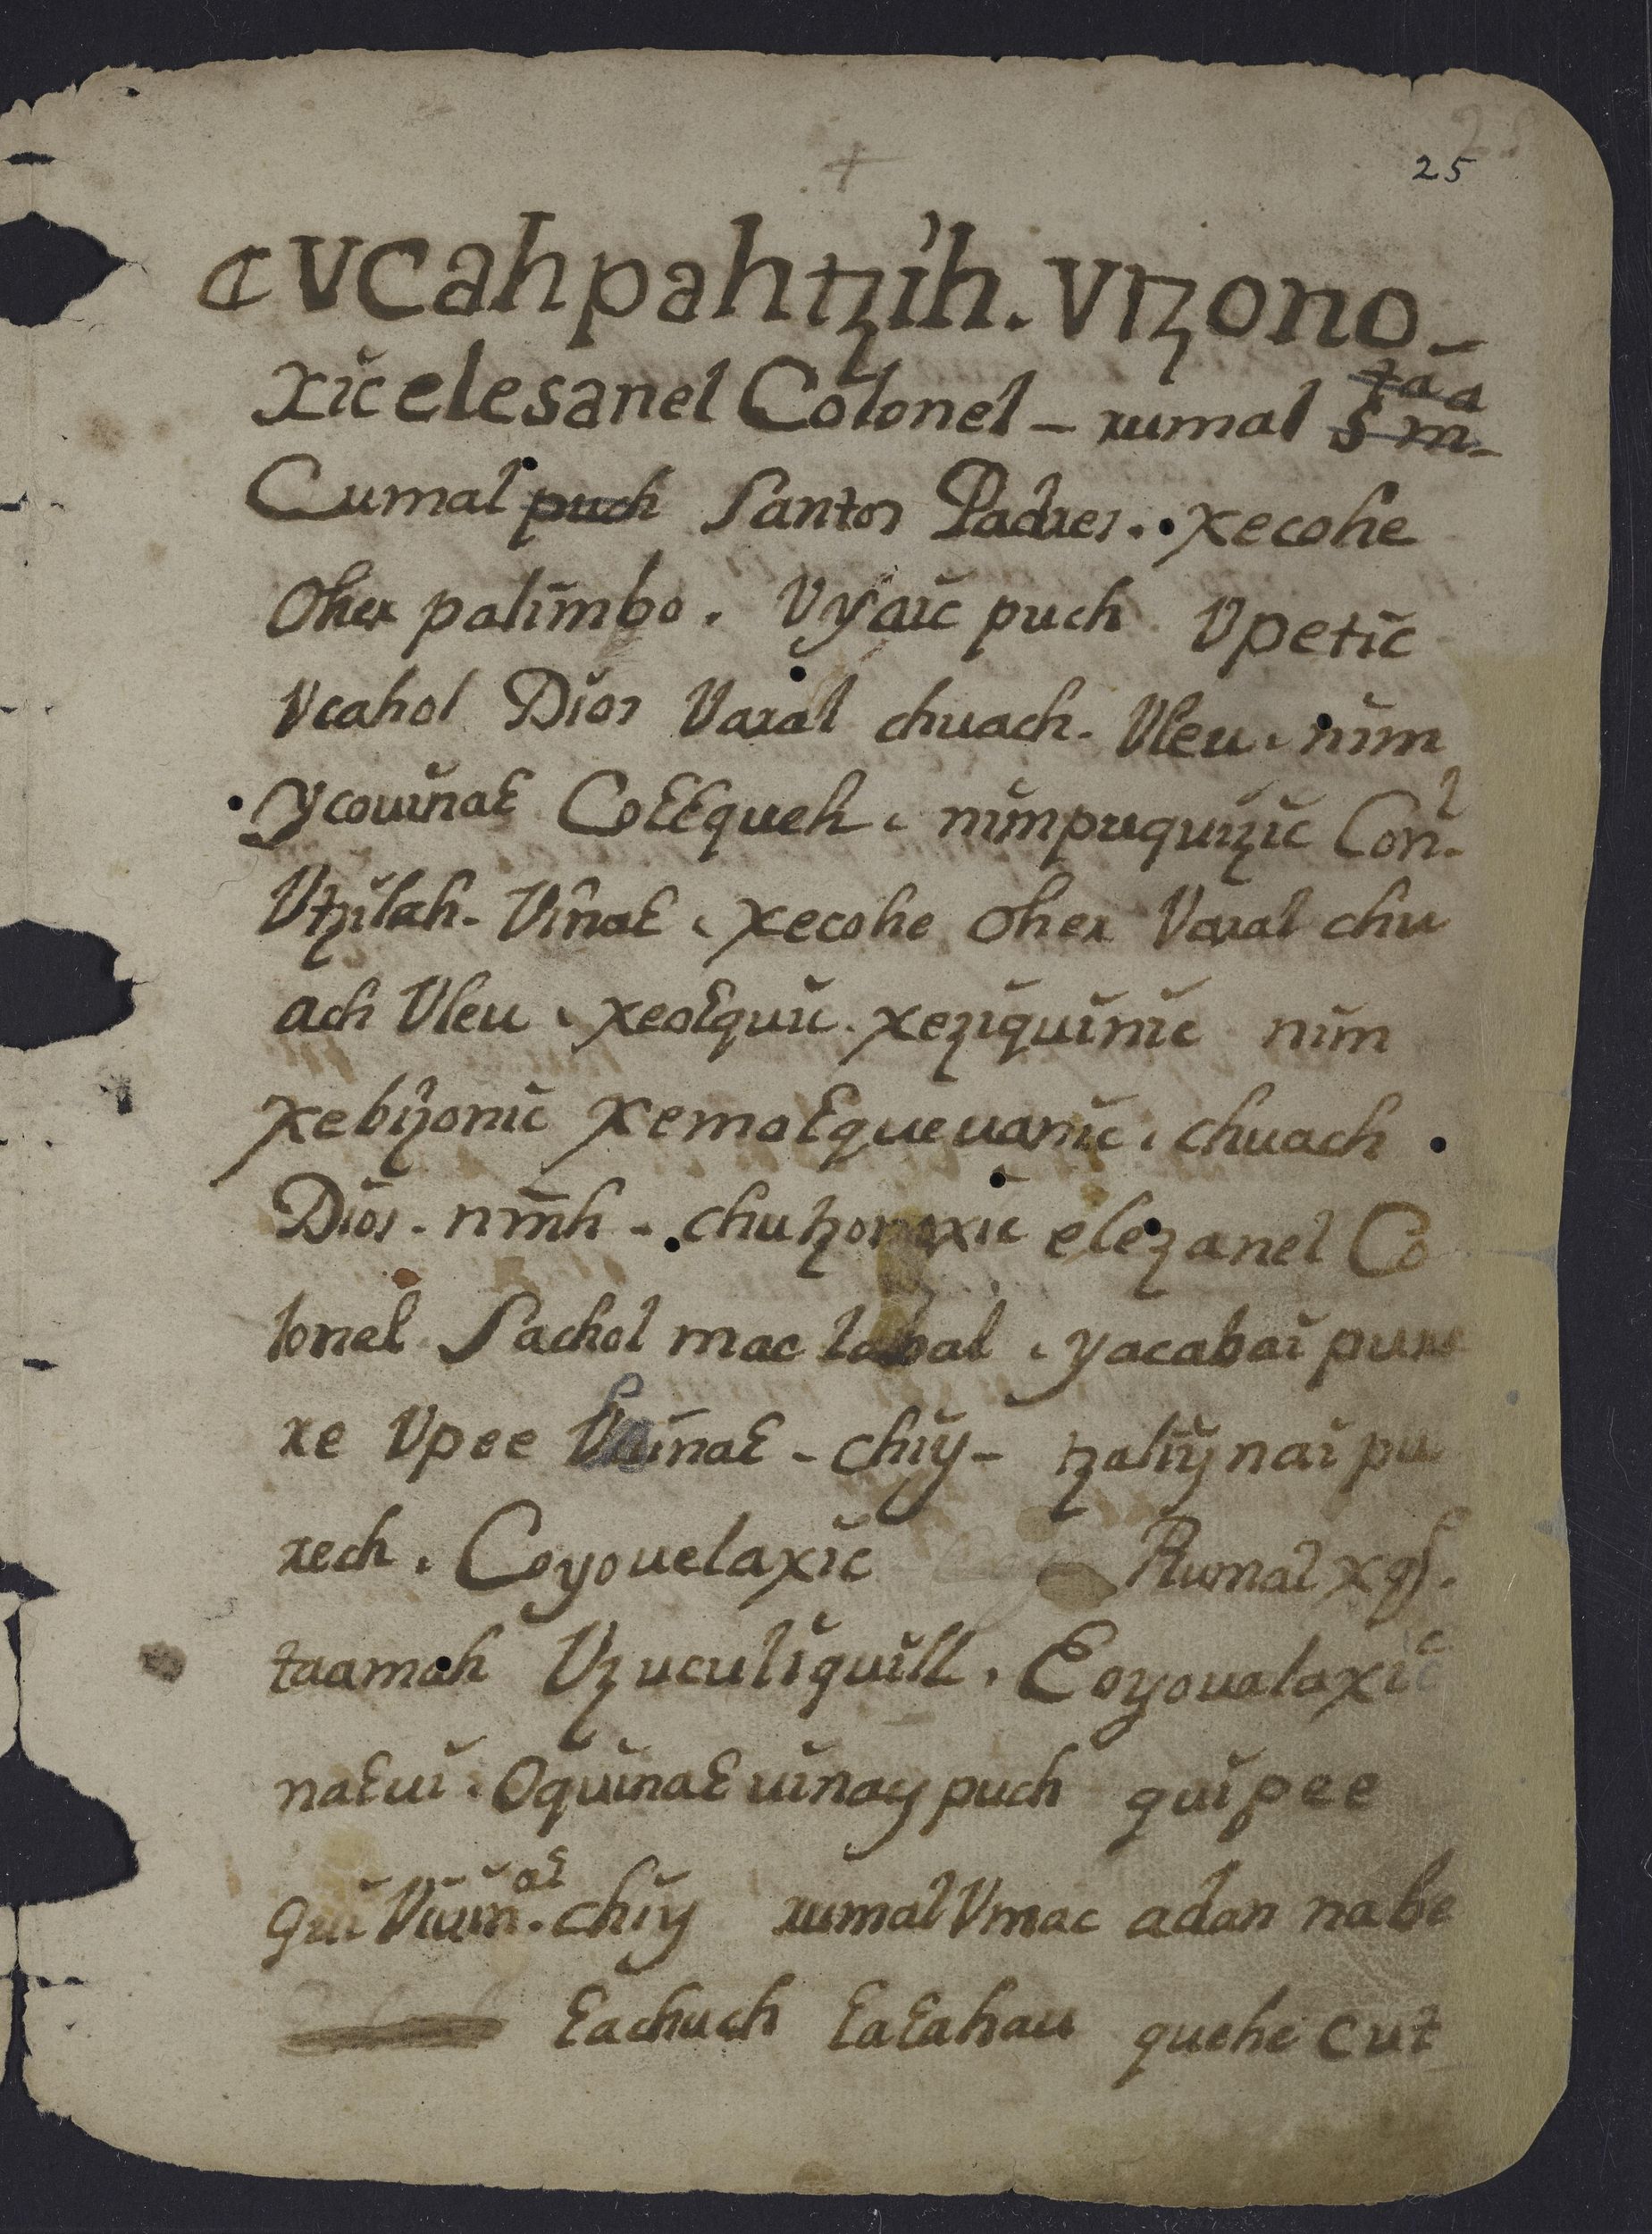 25
¶ vcah pah tzih. vtzono-
xic elesanel Colonel - rumal s m. taa
Cumal puch Santos Padres. xecohe
Oher palimbo. Vyaic puch Vpetic
Vcahol Dios Varal chuach. Vleu. nim
ycouinaɛ Coɛɛqueh. nimpuquizic Con.l
Vtzilah. Vinaɛ. xecohe oher Varal chu
ach Vleu. xeoɛquic. xeziquinic nim
xebiyonic xemaɛqueuanic. chuach
Dios. nimh - chutzonoxic elezanel Co
lonel Sachol mac labal. yacabai pure
re Vpee Vuinaɛ - chiy - tzaliy nai pu
rech. Coyouelaxic Rumal xpf.
taamah Vzuculiquill. Eoyoualaxic
naɛui. Oquinaɛ uinay puch quipee
qui Viuin.aɛ chiy rumal Vmac adan nabe
ɛachuch ɛaɛahau quehe cut